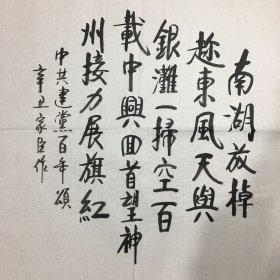 南湖放棹
趁東風天與
銀灘一掃空百
載中興回首望神
州接力展旗紅
中共建黨百年頌
辛丑家臣作